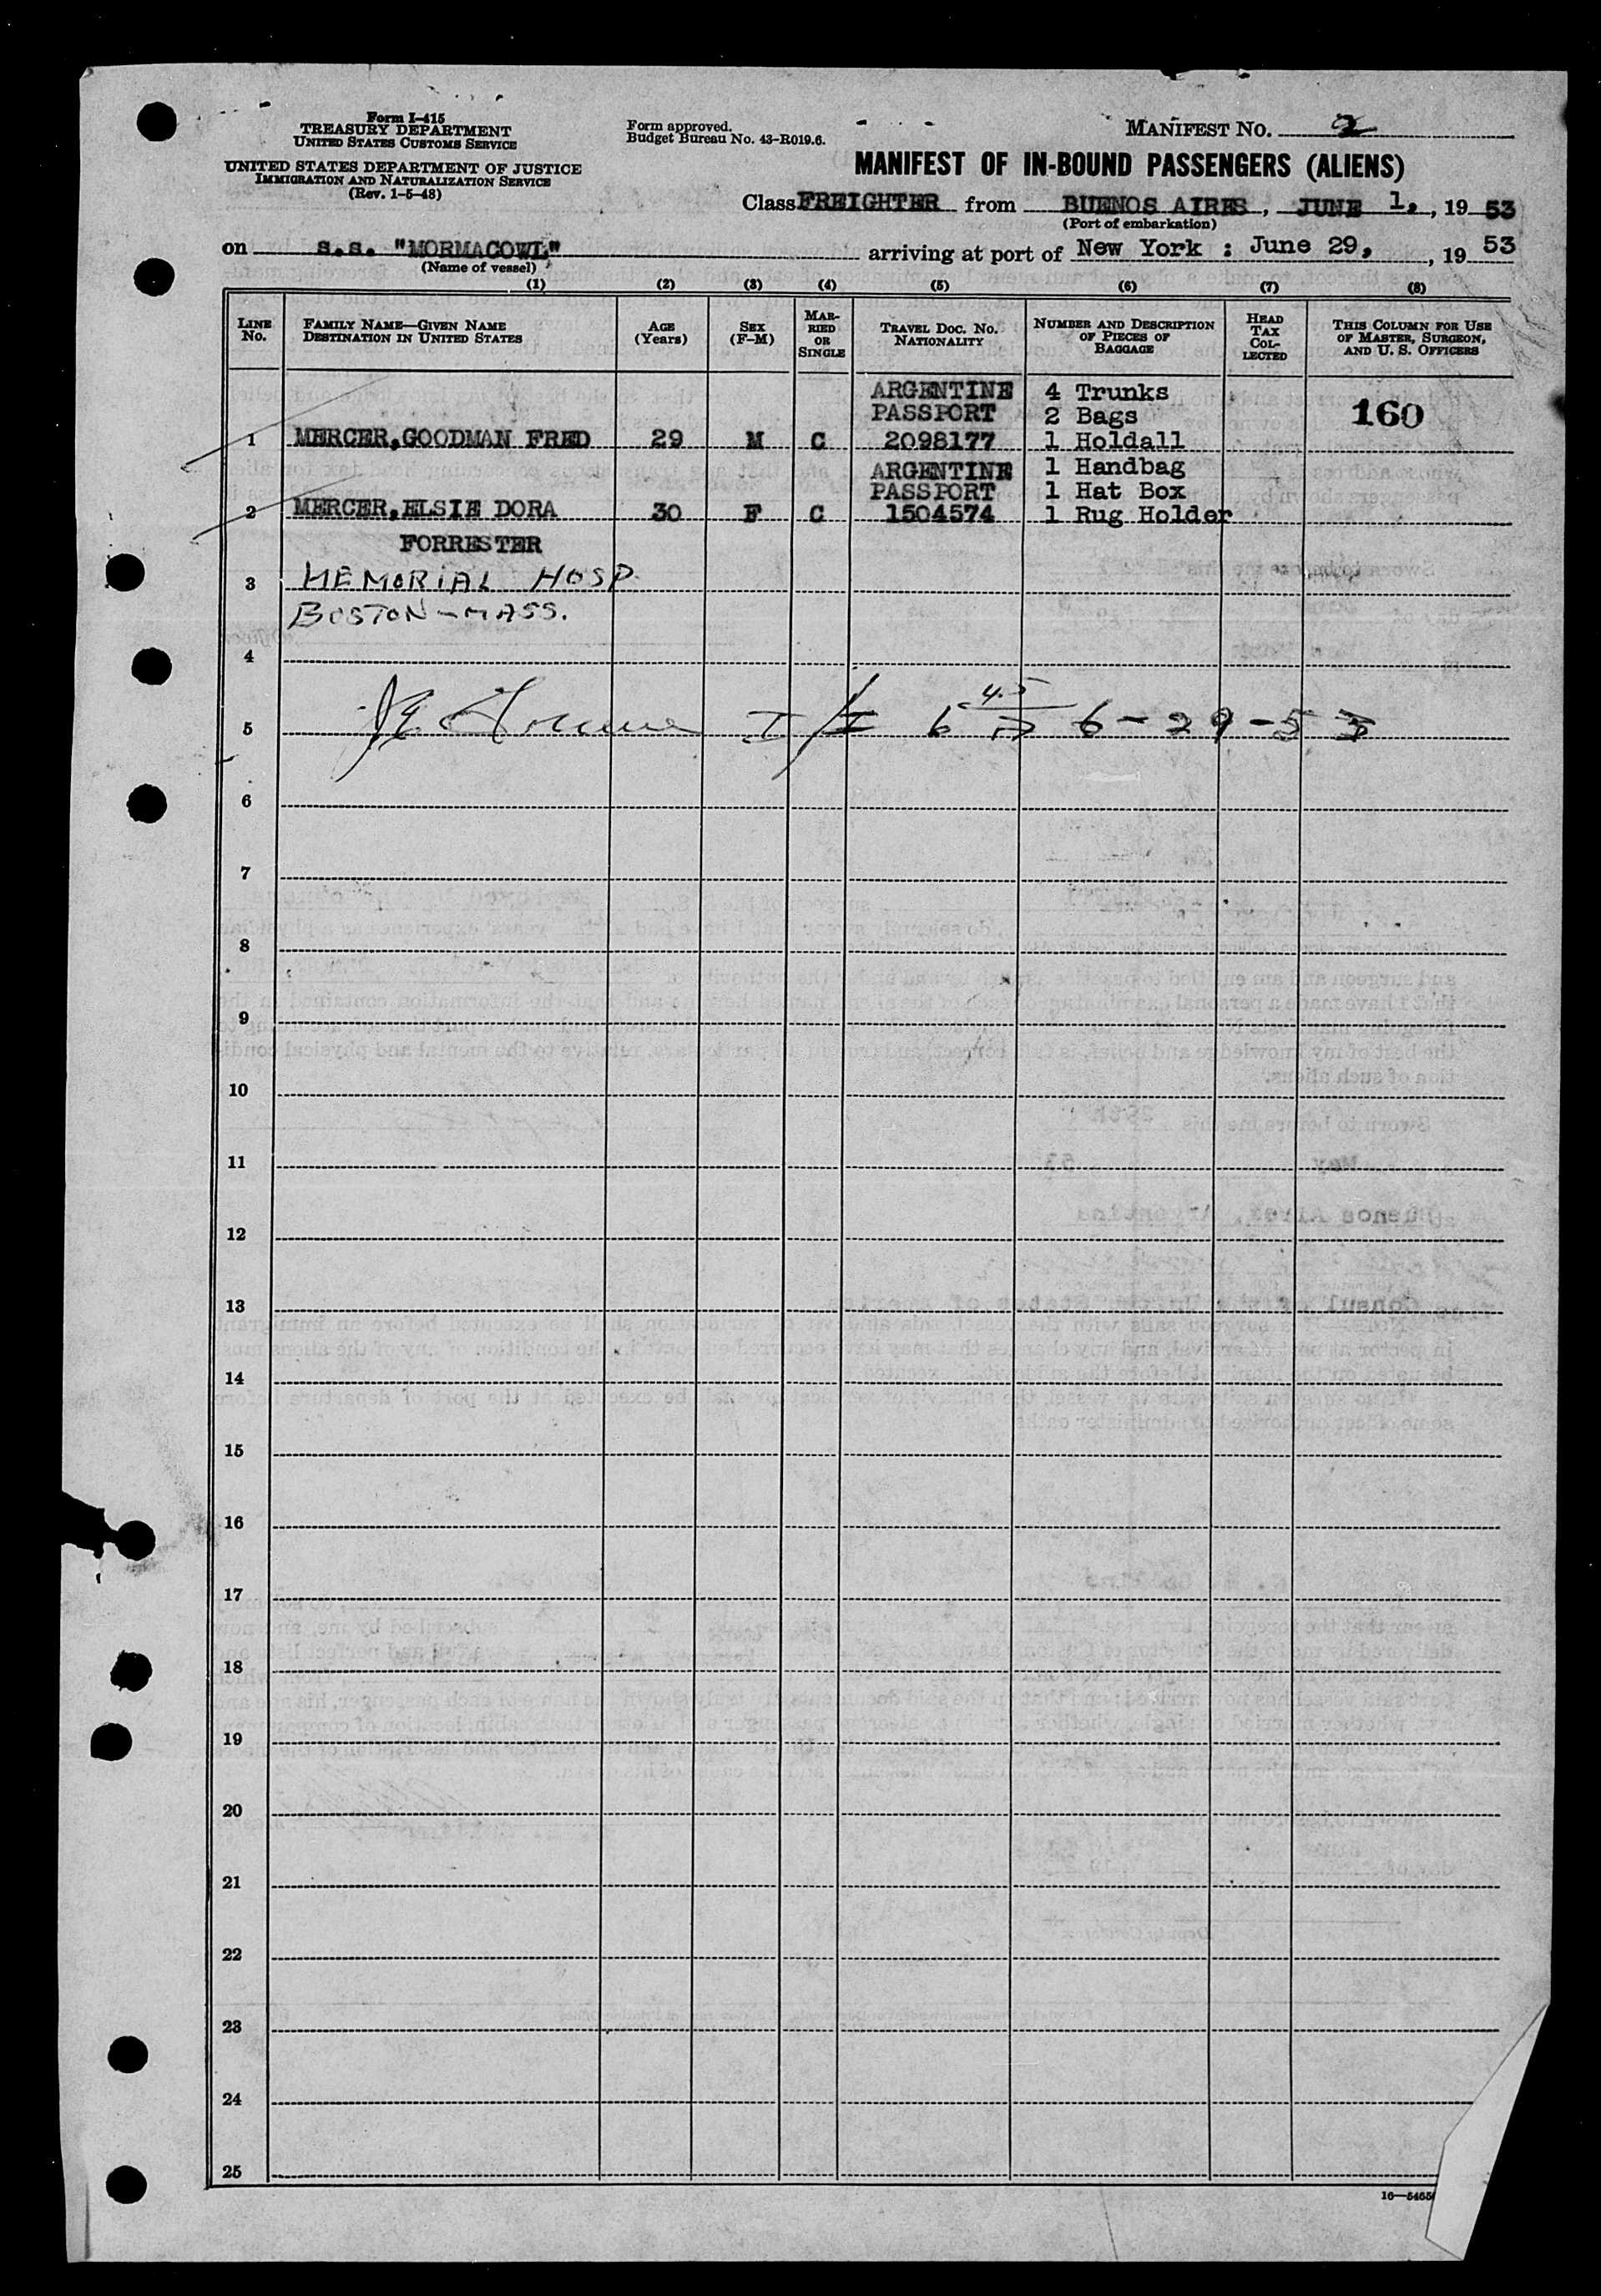 Form I-415
TREASURY DEPARTMENT
UNITED STATES CUSTOMS SERVICE
UNITED STATES DEPARTMENT OF JUSTICE
IMMIGRATION AND NATURALIZATION SERVICE
(Rev. 1-5-48)
Form approved.
Budget Bureau No. 43-R019.6.
MANIFEST NO. 2
MANIFEST OF IN-BOUND PASSENGERS (ALIENS)
Class FREIGHTER from BUENOS AIRES, JUNE 1, , 19 53
(Port of embarkation)
on s.s. "MORMACOWL" arriving at port of New York : June 29, , 19 53
(Name of vessel)
(1) (2) (3) (4) (5) (6) (7) (8)
LINE No. FAMILY NAME—GIVEN NAME DESTINATION IN UNITED STATES AGE (Years) SEX (F-M) MARRIED OR SINGLE TRAVEL DOC. NO. NATIONALITY NUMBER AND DESCRIPTION OF PIECES OF BAGGAGE HEAD TAX COLLECTED THIS COLUMN FOR USE OF MASTER, SURGEON, AND U. S. OFFICERS
ARGENTINE 4 Trunks
PASSPORT 2 Bags 160
1 MERCER,GOODMAN FRED 29 M C 2098177 1 Holdall
ARGENTINE 1 Handbag
PASSPORT 1 Hat Box
2 MERCER,ELSIE DORA 30 F C 1504574 1 Rug Holder
FORRESTER
3 MEMORIAL HOSP.
BOSTON-MASS.
4
5 6-29-53
6
7
8
9
10
11
12
13
14
15
16
17
18
19
20
21
22
23
24
25